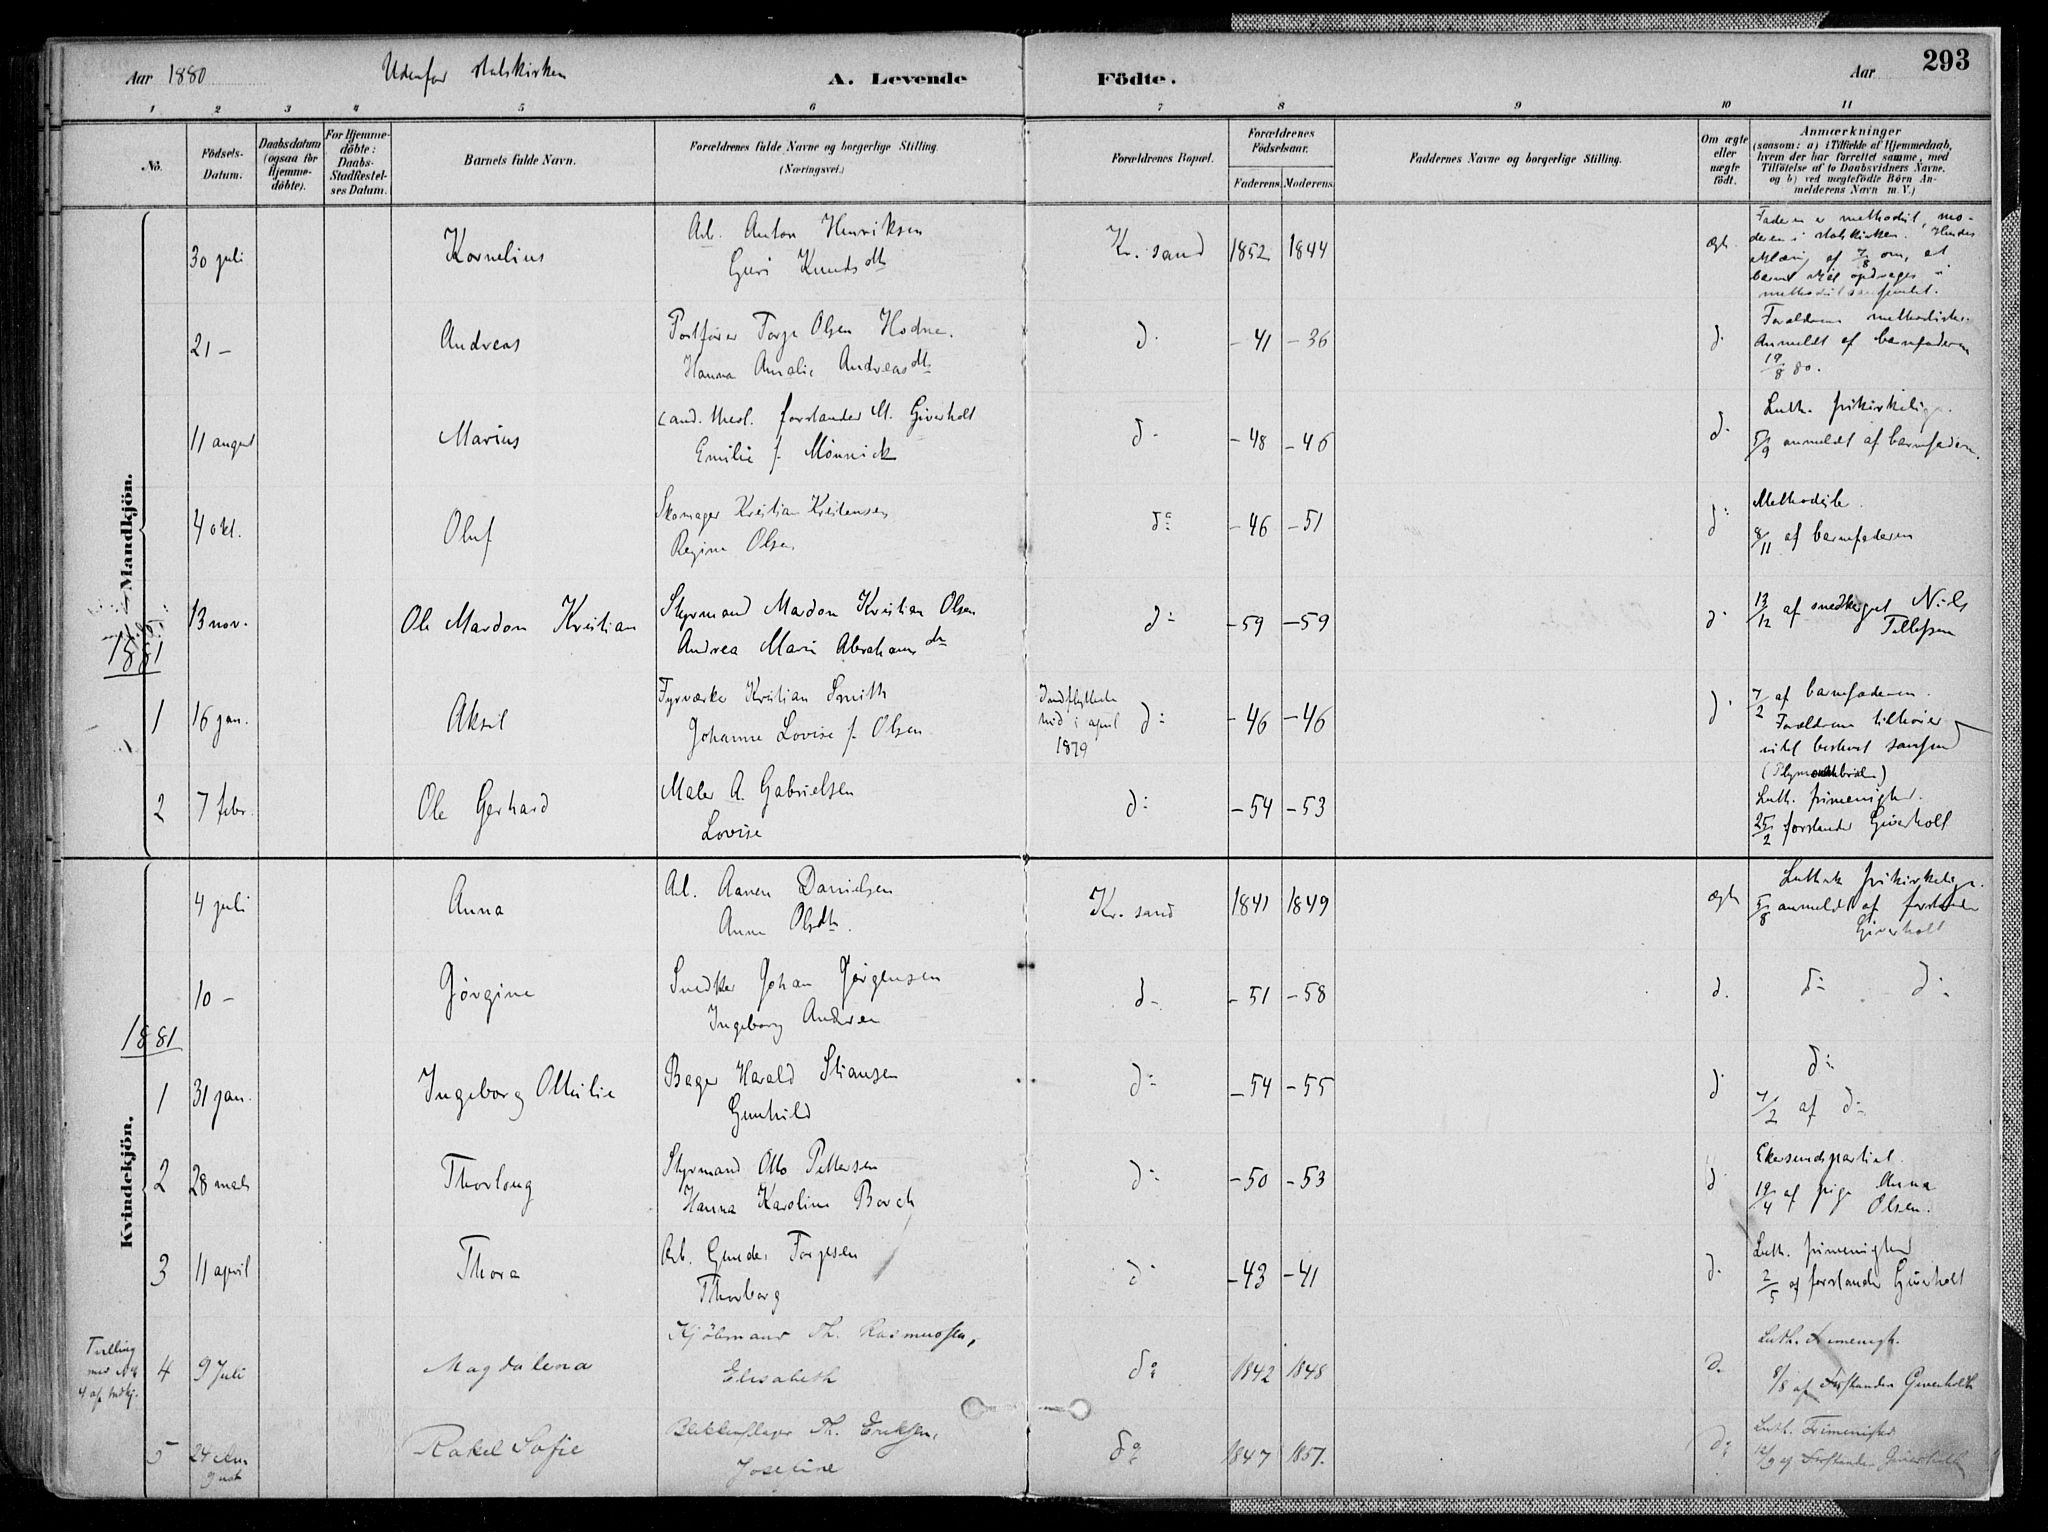 Aar 1880 Udenfor statskirken A. Levende Födte. Aar 293
1 2 3 4 5 6 7 8 9 10 11
No.
Födsels-Datum.
Daabsdatum (ogsaa for Hjemme-döbte).
For Hjemme-döbte: Daabs-Stadfæstel-ses Datum.
Barnets fulde Navn.
Forældrenes fulde Navne og borgerlige Stilling (Næringsvei.)
Forældrenes Bopæl.
Forældrenes Födselsaar.
Faderens. Moderens.
Faddernes Navne og borgerlige Stilling.
Om ægte eller uægte födt.
Anmærkninger
(saasom: a) i Tilfælde af Hjemmedaab,
hvem der har forrettet samme, med
Tilföielse af to Daabsvidners Navne,
og b) ved uægtefödte Börn An-
melderens Navn m. V.)
Mandkjön.
30 juli Kornelius Arb. Anton Henriksen
Guri Knudsdtr
Kr. sand 1852 1844 ægte
Faderen er methodist, mo-
deren i statskirken. Hendes
erklæring af 7/8 om, at
barnet skal opdrages i
methodistsamfundet.
21 – Andreas Postfører Torje Olsen Hodne.
Hanna Amalie Andreasdtr
d. – 41 – 36 d.
Forældrene methodister.
Anmeldt af barnefaderen
19/8 80.
11 august Marius Cand. theol. forstander M. Giverholt
Emilie f. Mönnick
d. – 48 – 46 d.
Luth. frikirkelige.
5/9 anmeldt af barnefaderen.
4 okt. Oluf Skomager Kristian Kristensen
Regine Olsen
do – 46 – 51 d:
Methodiste.
8/11 af barnefaderen
13 nov. Ole Mardon Kristian Styrmand Mardon Kristian Olsen
Andrea Marie Abrahamsdtr
d: – 59 – 59 d.
13/12 af snedkersvet Nils
Tellefsen
1881
1 16 jan. Aksel Fyrværker Kristian Smith
Johanne Lovise f. Olsen
Indflyttede
hid i april
1879
d: – 46 – 46 d.
7/2 af barnefaderen.
Forældrene tilhører
intet bestemt samfund
(Plymouthbrødre)
2 7 febr. Ole Gerhard Maler A. Gabrielsen
Lovise
d: – 54 – 53
Luth. frimenighed.
25/2 forstander Giverholt
Kvindekjön.
4 juli Anna Arb. Aanen Danielsen
Anne Olsdtr.
Kr. sand 1841 1849 ægte
Luthersk frikirkelige.
5/8 anmeldt af forstander
Giverholt
10 – Jörgine Snedker Johan Jörgensen
Ingeborg Andersen
d. – 51 – 58 d. d: d:
1881
1 31 jan. Ingeborg Ottilie Bager Harald Stiansen
Gunhild
d: – 54 – 55 d.
d:
7/2 af d:
2 28 marts Thorlong Styrmand Otto Pettersen
Hanna Karoline Borch
d: – 50 – 53 d.
Ekersundspartiet.
19/4 af pige Anna
Olsen.
3 11 april Thora Arb. Gunder Torjesen
Thorborg
d: – 43 – 41 d.
Luth. frimenighed
2/5 af forstander Giverholt
Tvilling
med No
4 af Mdkj.
4 9 Juli Magdalena Kjöbmand Th. Rasmussen,
Elisabeth
do 1842 1848 d.
Luth. Frimenigh.
8/8 af Forstander Giverholt
5 24 August Rakel Sofie Blikkenslager Th. Eriksen,
Josefine
do 1847 1851. do
Luth. Frimenighed
12/9 af Forstander Giverholt